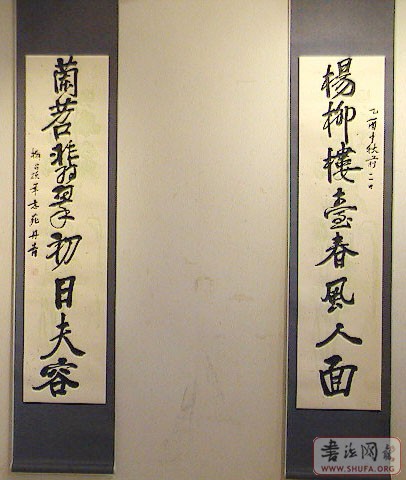 楊柳樓臺春風人面
乙酉中秋前二日
蘭苕翡翠初日夫容
書法网
WWW.SHUFA.ORG